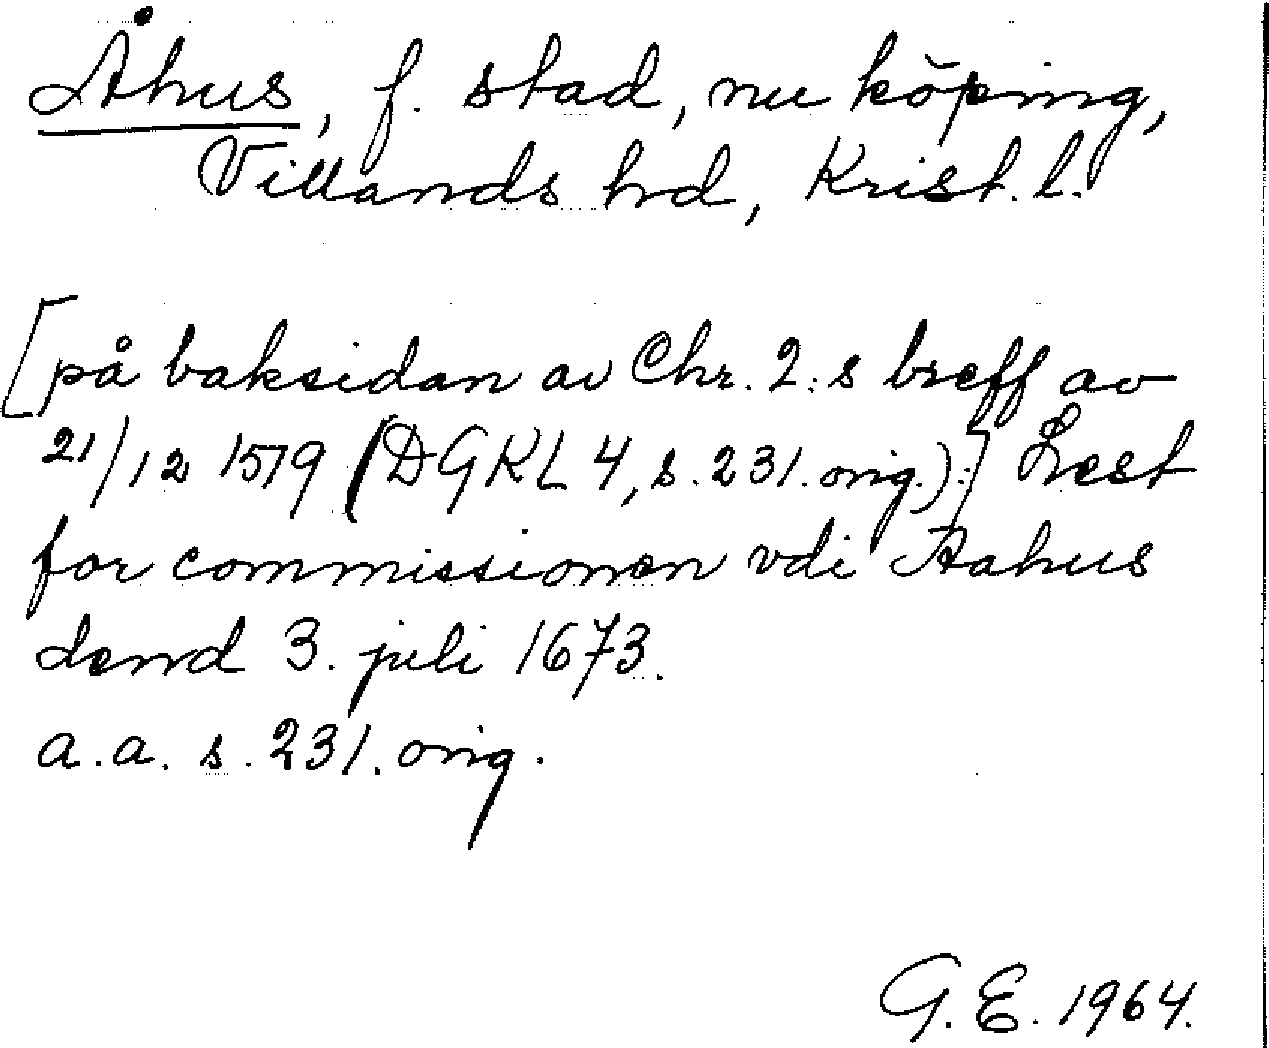 Åhus, f. stad, nu köping,
Villands hd, Krist. l.
[på baksidan av Chr. 2:s breff av
21/12 1519 (DGKL 4, s. 231. orig.).] Lest
for commissionen vdi Aahus
dend 3. juli 1673.
a.a. s. 231. orig.
G.E. 1964.